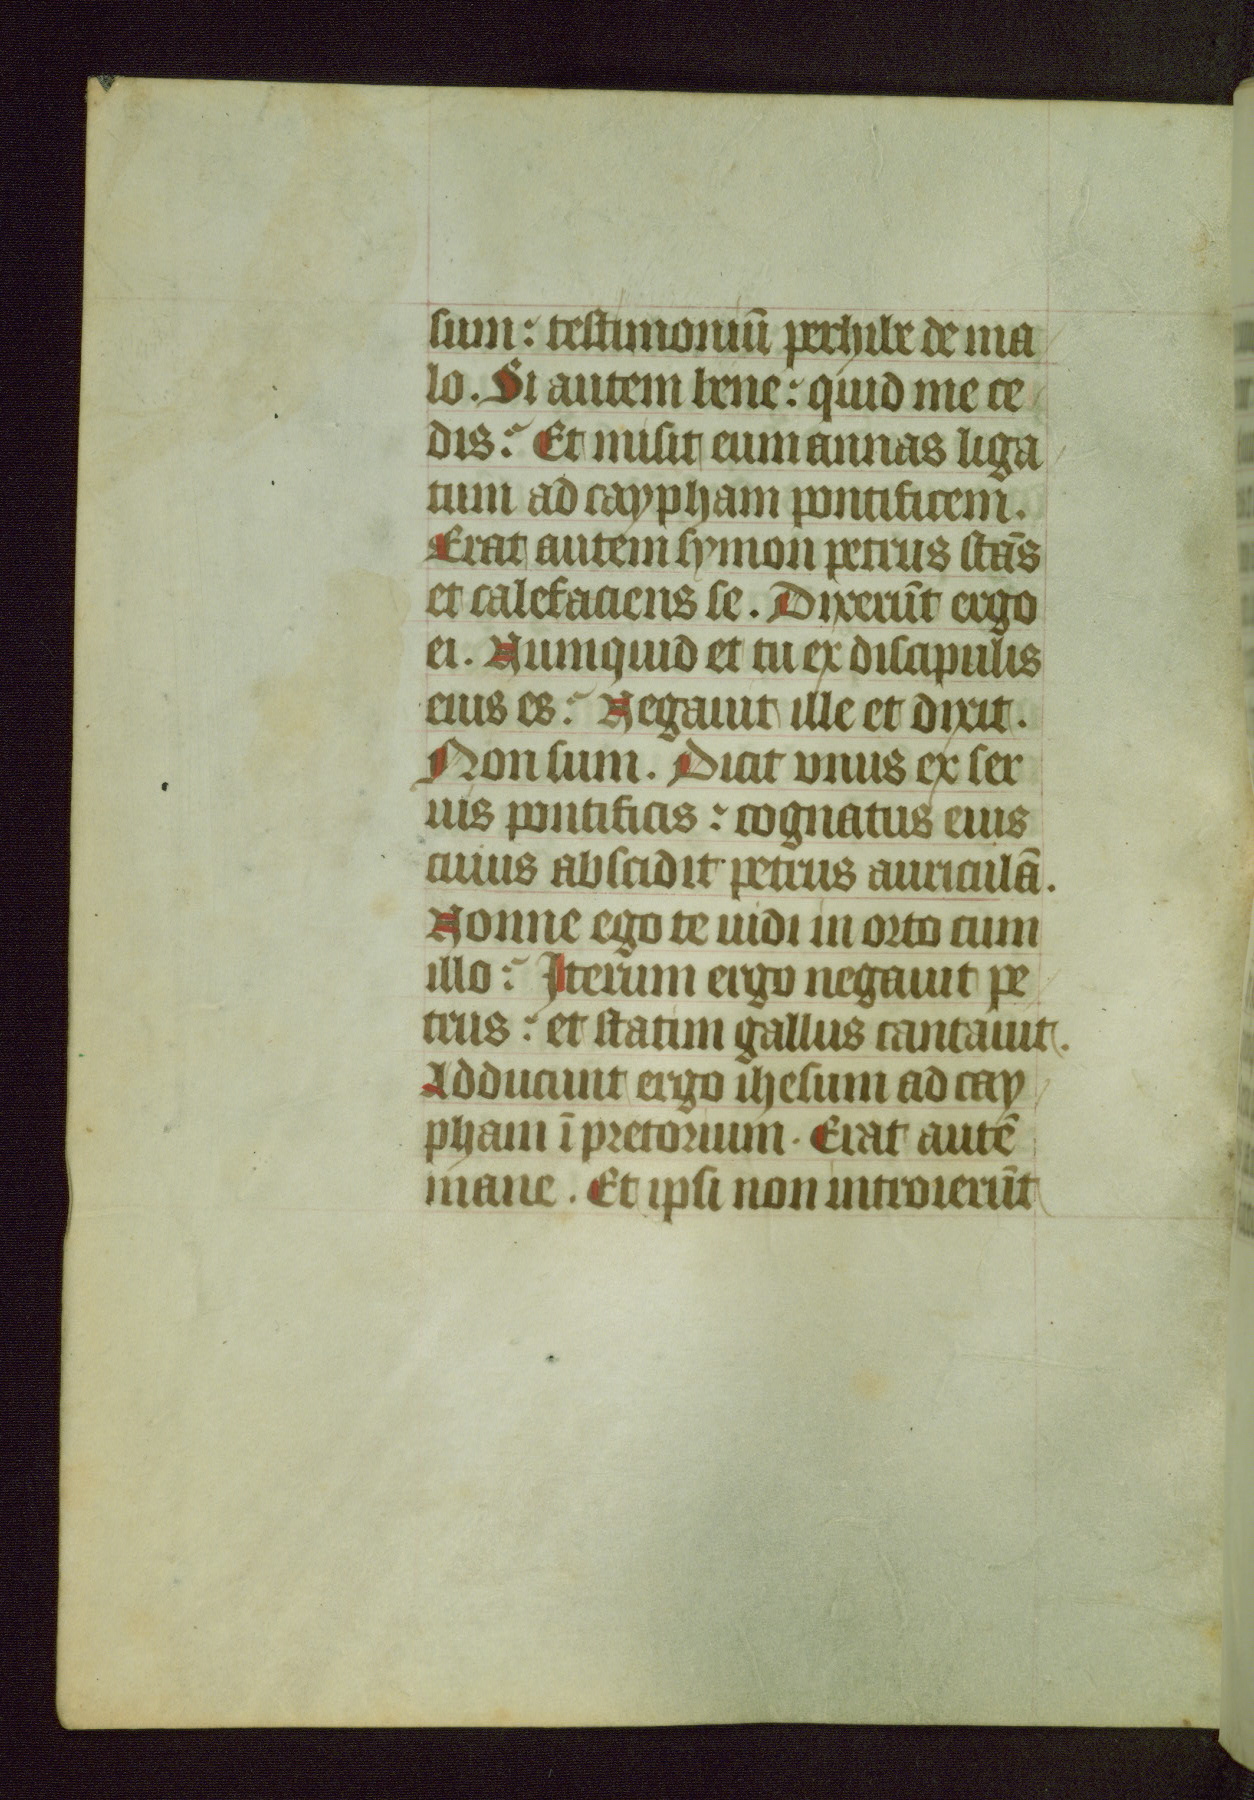 sum: testimoniū perhibe de ma
lo. Si autem bene: quid me ce
dis: Et misit eum annas liga
tum ad caypham pontificem.
Erat autem symon petrus stās
et calefaciens se. Dixerūt ergo
ei. Numquid et tu ex discipulis
eius es: Negauit ille et dixit.
Non sum. Dicit vnus ex ser
uis pontificis: cognatus eius
cuius abscidit petrus auriculā.
Nonne ego te uidi in orto cum
illo: Iterum ergo negauit pe
trus: et statim gallus cantauit.
Adducunt ergo ihesum ad cay
pham ī pretorium. Erat autē
mane. Et ipsi non introierūt